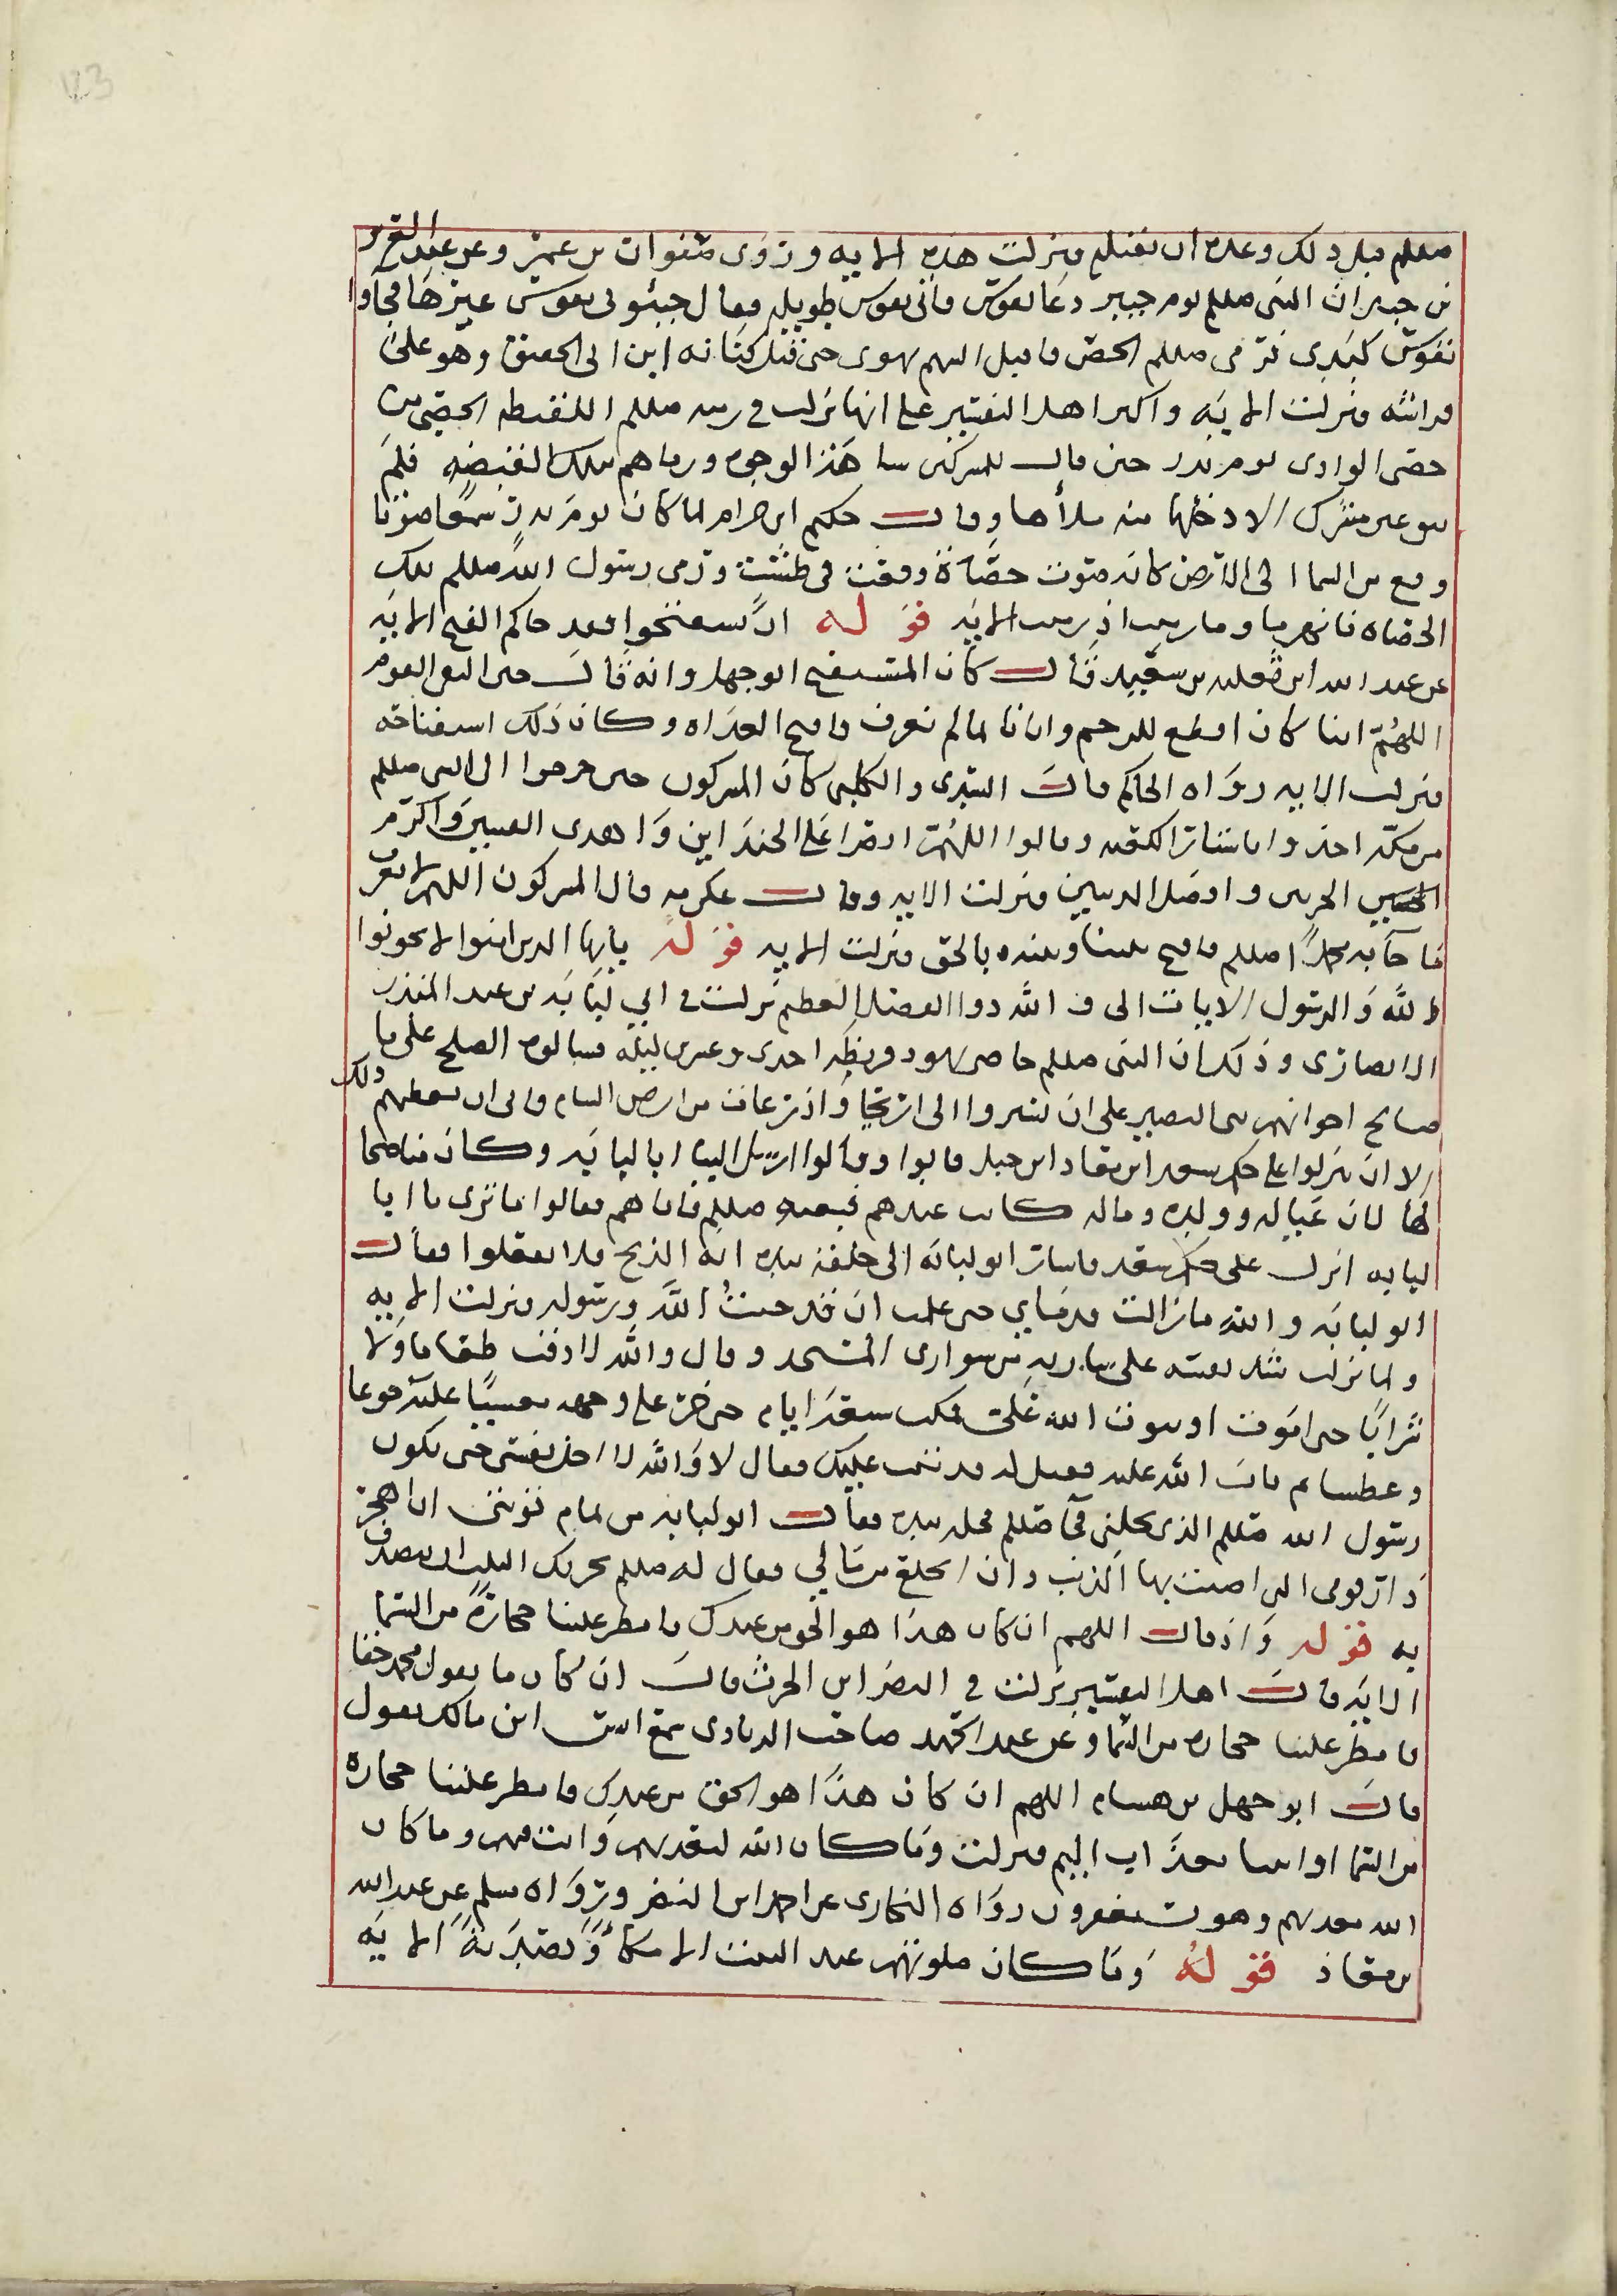 123
صللم قبل ذلك وعده ان يقتله فنزلت هذه الايه وروى صفوان بن عمرو عن عبد العزيز
بن جبير ان النبى صللم يوم خيبر دعا بقوس فاتى بقوس طويله فقال جيئونى بقوس غيرها فجاوا
بقوس كبدى فرمى صللم الحصن فاقبل السهم يهوى حتى قتل كنانه ابن ابى الحقيق وهو على
فراشه فنزلت الايه واكثر اهل التفسير على انها نزلت فى رميه صللم القبضه الحصى من
حصى الوادى يوم بدر حين قال للمشركين شاهت الوجوه ورماهم بتلك القبضه فلم
يبق عين مشرك الا دخلها منه ملأها وقال حكيم ابن حزام لما كان يوم بدر سمعنا صوتا
وقع من السما الى الارض كانه صوت حصاة وقعت فى طشت ورمى رسول الله صللم بتلك
الحصاه فانهزمنا وما رميت اذ رميت الايه قوله ان تستفتحوا فقد جاكم الفتح الايه
عن عبد الله ابن ثعلبه بن سعيد قال كان المستفتح ابو جهل وانه قال حين التقى القوم
اللهم اينا كان اقطع للرحم واتانا لما لم نعرف فافتح الغداه وكان ذلك استفتاحه
فنزلت الايه رواه الحاكم قال السدى والكلبى كان المشركون حين خرجوا الى النبى صللم
من مكه اخذوا باستار الكعبه وقالوا اللهم انصر اعلى الجندين واهدى الفيتين واكرم
الحزبين وافضل الدينين فنزلت الايه وقال عكرمه قال المشركون اللهم لا نعرف
ما جآ به محمدا صللم فافتح بيننا وبينه بالحق فنزلت الايه قوله يايها الذين امنوا لا تخونوا
الله والرسول الايات الى ف الله ذو الفضل العظيم نزلت فى ابى لبابه بن عبد المنذر
الانصارى وذلك ان النبى صللم حاصر يهود قريظه احدى وعشرين ليله فسالوه الصلح على ما
صالح اخوانهم بنى النضير على ان يسيروا الى اريحا واذرعات من ارض الشام فابى ان يعطيهم ذلك
الا ان ينزلوا على حكم سعد ابن معاذ ابن جبل فابوا وقالوا ارسل الينا ابا لبابه وكان مناصحا
لهم لان عياله وولده وماله كانت عندهم فبعثه صللم فاتاهم فقالوا ما ترى يا ابا
لبابه انزل على حكم سعد فاشار ابو لبابه الى حلقه بيده انه الذبح فلا تفعلوا فقال
ابو لبابه والله ما زالت قدماى حتى علمت ان قد خنت الله ورسوله فنزلت الايه
ولما نزلت شد نفسه على ساريه من سوارى المسجد وقال والله لا اذقت طعاما ولا
شرابا حتى اموت او يتوب الله على فمكث سبعة ايام حتى خر على وجهه مغشيا عليه جوعا
وعطشا ثم تاب الله عليه فقيل له قد تيب عليك فقال لا والله لا احل نفسى حتى يكون
رسول الله صللم الذى يحلنى فجآ صللم فحله بيده فقال ابو لبابه من تمام توبتى ان اهجر
دار قومى التى اصبت بها الذنب وان انخلع من مالى فقال له صللم يجزيك الثلث ان تصدق
به قوله واذ قال اللهم ان كان هذا هو الحق من عندك فامطر علينا حجارة من السما
الايه قال اهل التفسير نزلت فى النضر ابن الحرث قال ان كان ما يقول محمد حقا
فامطر علينا حجاره من السما وعن عبد الحميد صاحب الزيادى سمع انس ابن مالك يقول
قال ابو جهل بن هشام اللهم ان كان هذا هو الحق من عندك فامطر علينا حجاره
من السما او ايتنا بعذاب اليم فنزلت وما كان الله ليعذبهم وانت فيهم وما كان
الله معذبهم وهم يستغفرون رواه البخارى عن احمد ابن النضر ورواه مسلم عن عبد الله
بن معاذ قوله وما كان صلوتهم عند البيت الا مكآء وتصدية الايه